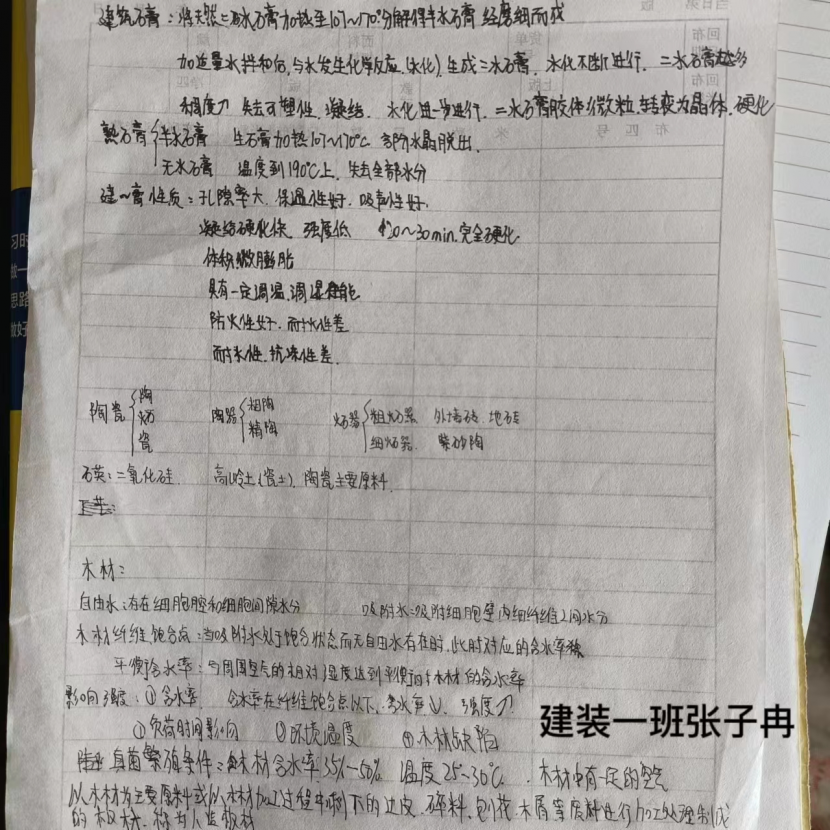 建筑石膏：将天然二水石膏加热至107~170°分解得半水石膏 经磨细而成
加适量水拌和后，与水发生化学反应（水化）生成二水石膏，水化不断进行，二水石膏越多
稠度大 失去可塑性，凝结，水化进一步进行，二水石膏胶体微粒，转变为晶体，硬化
熟石膏 半水石膏 生石膏加热107~170°C 部分水晶脱出．
无水石膏 温度到190°C上，失去全部水分
建~膏性质：孔隙率大，保温性好，吸声性好，
凝结硬化快 强度低 20~30min，完全硬化
体积微膨胀
具有一定调温，调湿性能
防火性好，耐火性差
耐水性，抗冻性差．
陶瓷 陶 炻 瓷 陶器 粗陶 精陶 炻器 粗炻器 外墙砖 地砖
细炻器 紫砂陶
石英：二氧化硅． 高岭土（瓷土），陶瓷主要原料．
木材：
自由水：存在细胞腔和细胞间隙水分 吸附水：吸附细胞壁内细纤维之间水分
木材纤维饱合点：当吸附水处于饱合状态而无自由水存在时，此时对应的含水率
平衡含水率：与周围空气的相对湿度达到平衡时木材的含水率
影响强度：①含水率 含水率在纤维饱合点以下，含水率↓，强度
负荷时间影响 环境温度 ④木材缺陷
真菌繁殖条件：木材含水率35%~50% 温度25~30°C．木材中有一定的空气
以木材为主要原料或以木材加工过程中剩下的边皮、碎料、刨花、木屑等废料进行加工处理制成
的板材，称为人造板材
建装一班张子冉